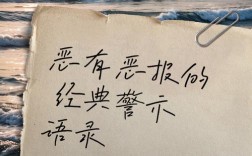 恶有恶报的
经典警示
语录